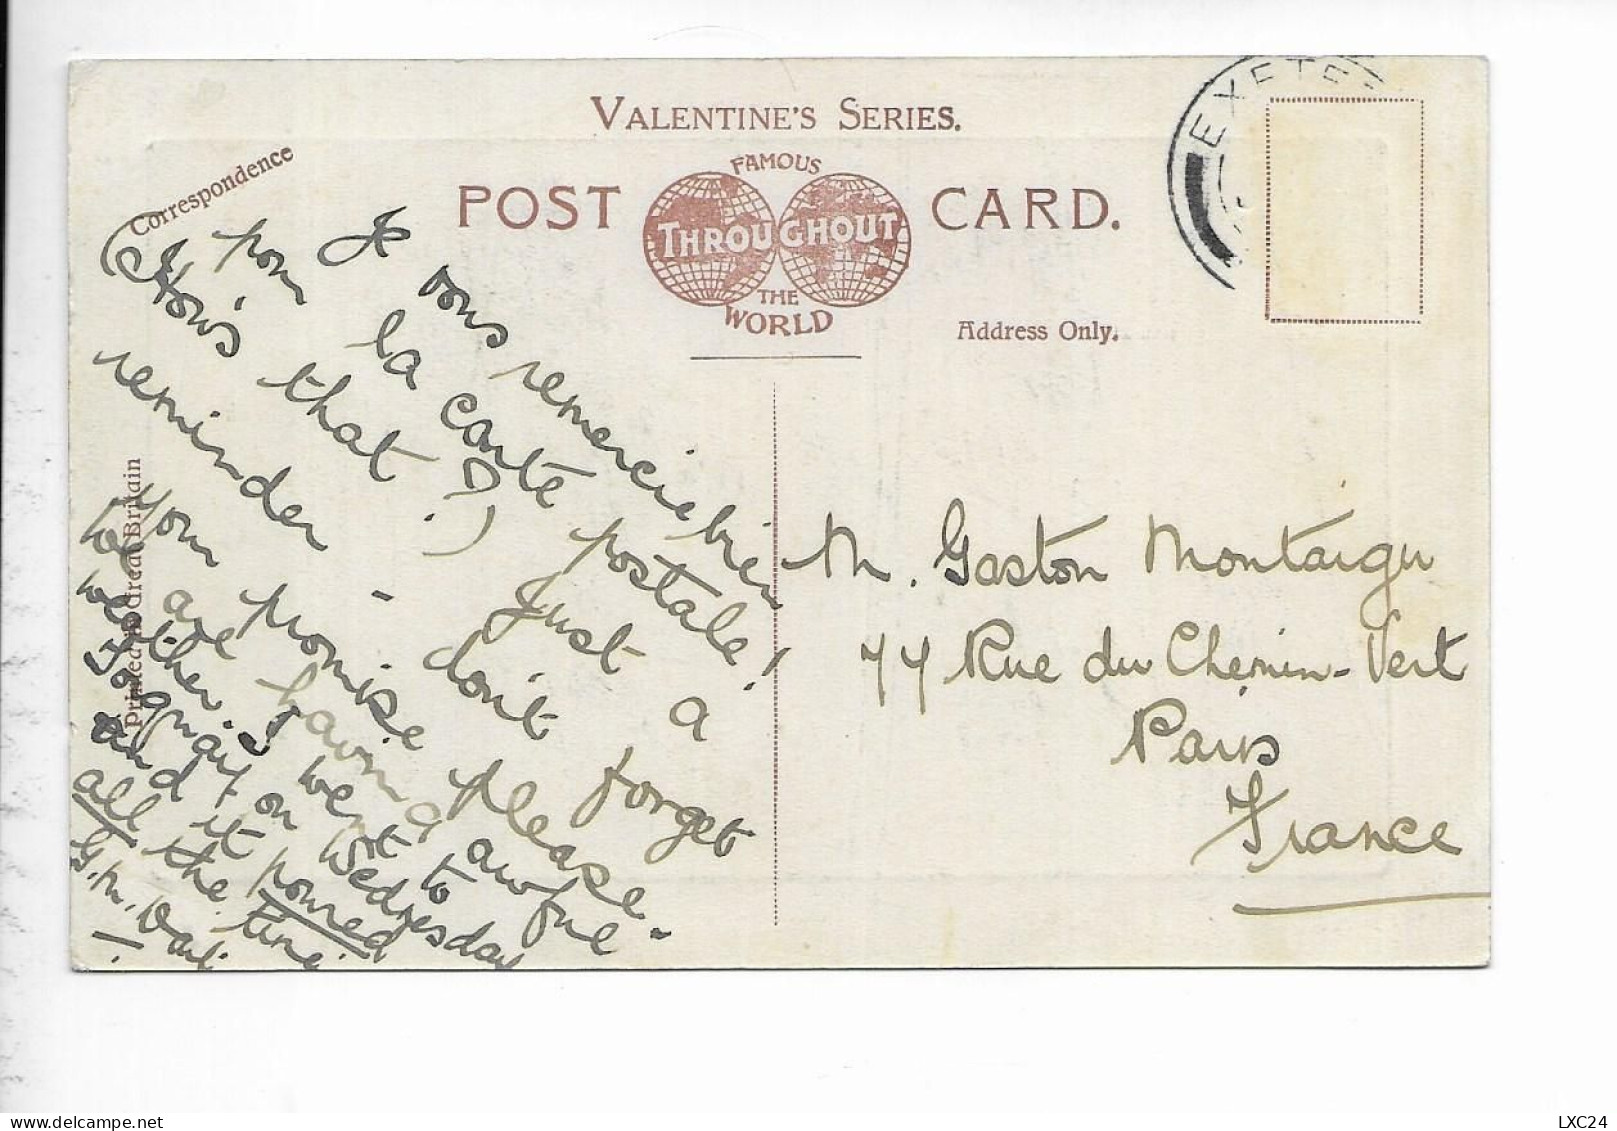 VALENTINE'S SERIES.
FAMOUS
POST THROUGHOUT CARD.
THE
WORLD
Correspondence
Address Only.
Printed in Great Britain
EXETE
Je vous remercie bien
pour la carte postale!
(How's that?) Just a
reminder - don't forget
your promise please.
We are having awful
weather. I went to
Torquay on Wednesday
and it poured
all the time
G.M.
M. Gaston Montaigu
77 Rue du Chemin-Vert
Paris
France
LXC24